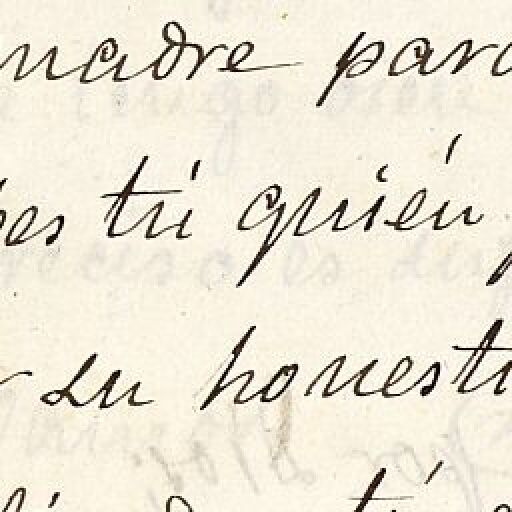 madre para
bes tú quién
su honesti